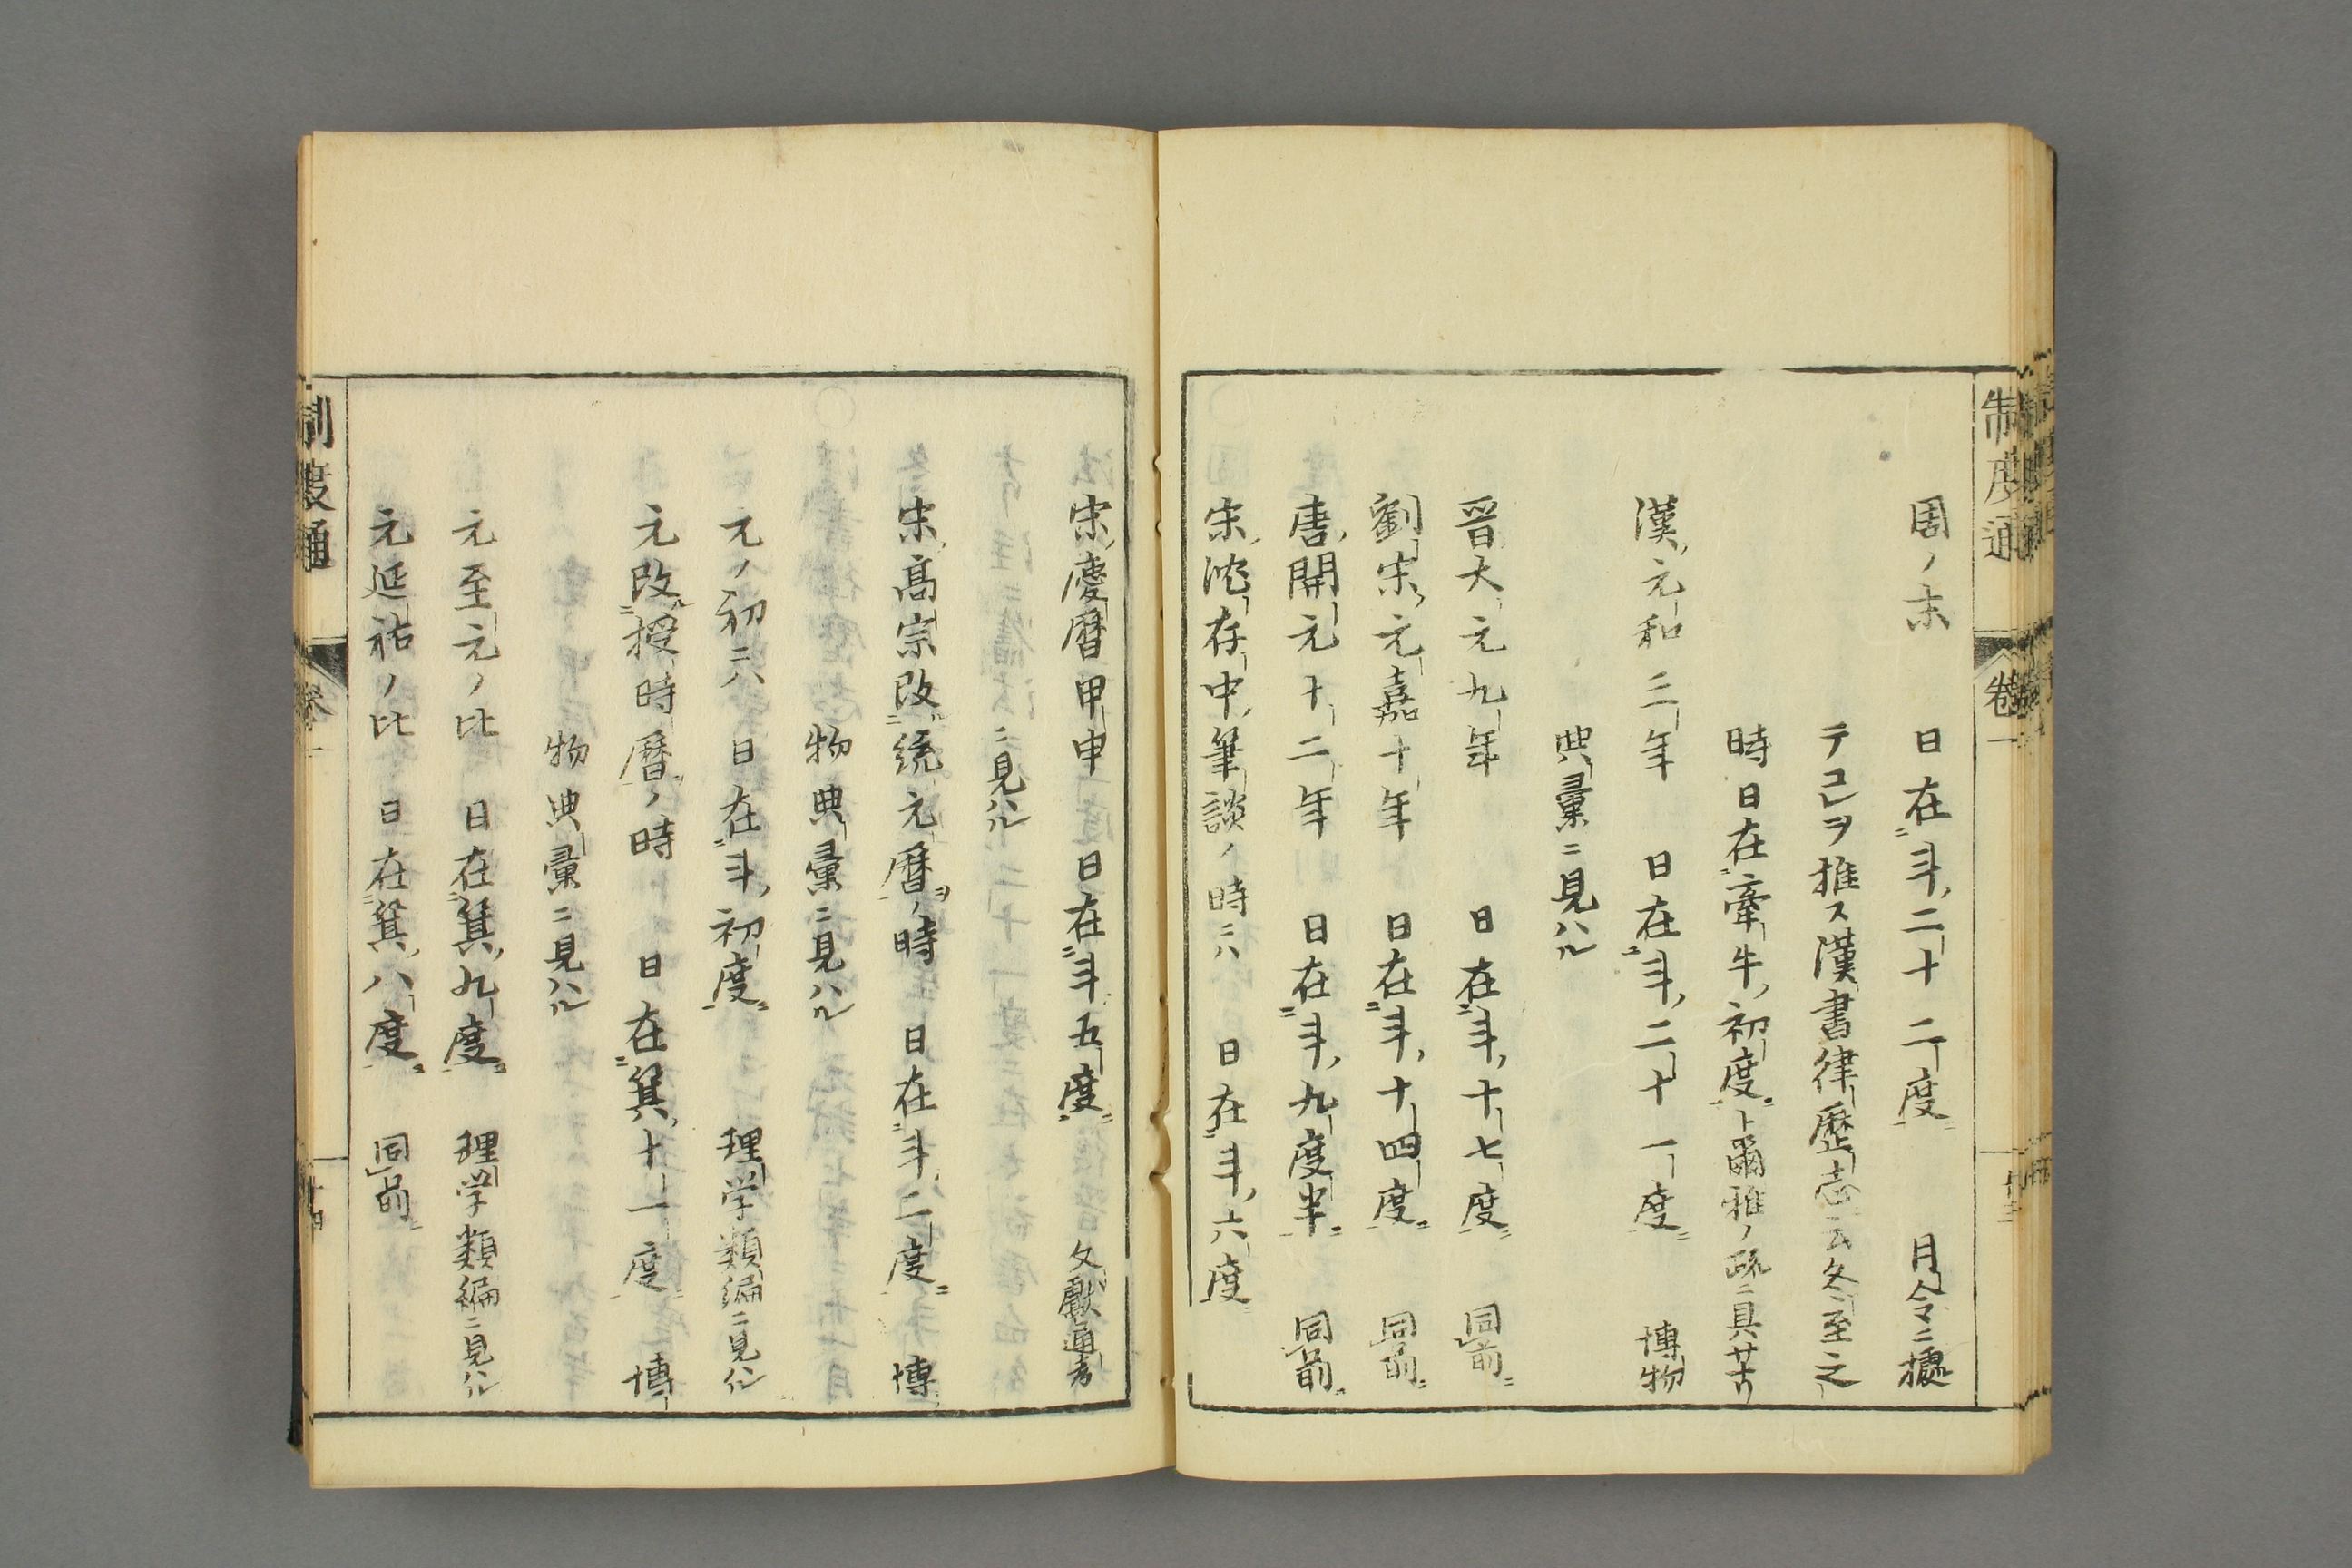 制度通 卷一 十三
周ノ末 日在斗二十二度 月令ニ據
テコレヲ推ス漢書律歷志云冬至之
時日在牽牛初度ト爾雅ノ疏ニ具サナリ
漢元和三年 日在斗二十一度 博物
典彙ニ見ハル
晉大元九年 日在斗十七度 同前
劉宋元嘉十年 日在斗十四度 同前
唐開元十二年 日在斗九度半 同前
宋沈存中筆談ノ時ニハ 日在斗六度
宋慶曆甲申 日在斗五度 文獻通考
ニ見ハル
宋髙宗改統元曆ノ時 日在斗二度 博
物典彙ニ見ハル
元ノ初ニハ 日在斗初度 理学類編ニ見ハル
元改授時曆ノ時 日在箕十一度 博
物典彙ニ見ハル
元至元ノ比 日在箕九度 理学類編ニ見ハル
元延祐ノ比 日在箕八度 同前
制度通 卷一 十四